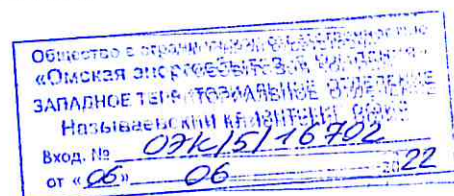 Общество с ограниченной ответственностью
«Омская энергосбытовая компания»
ЗАПАДНОЕ ТЕРРИТОРИАЛЬНОЕ ОТДЕЛЕНИЕ
Называевский клиентский офис
Вход. № ОЭК/5/16702
от «06» 06 2022